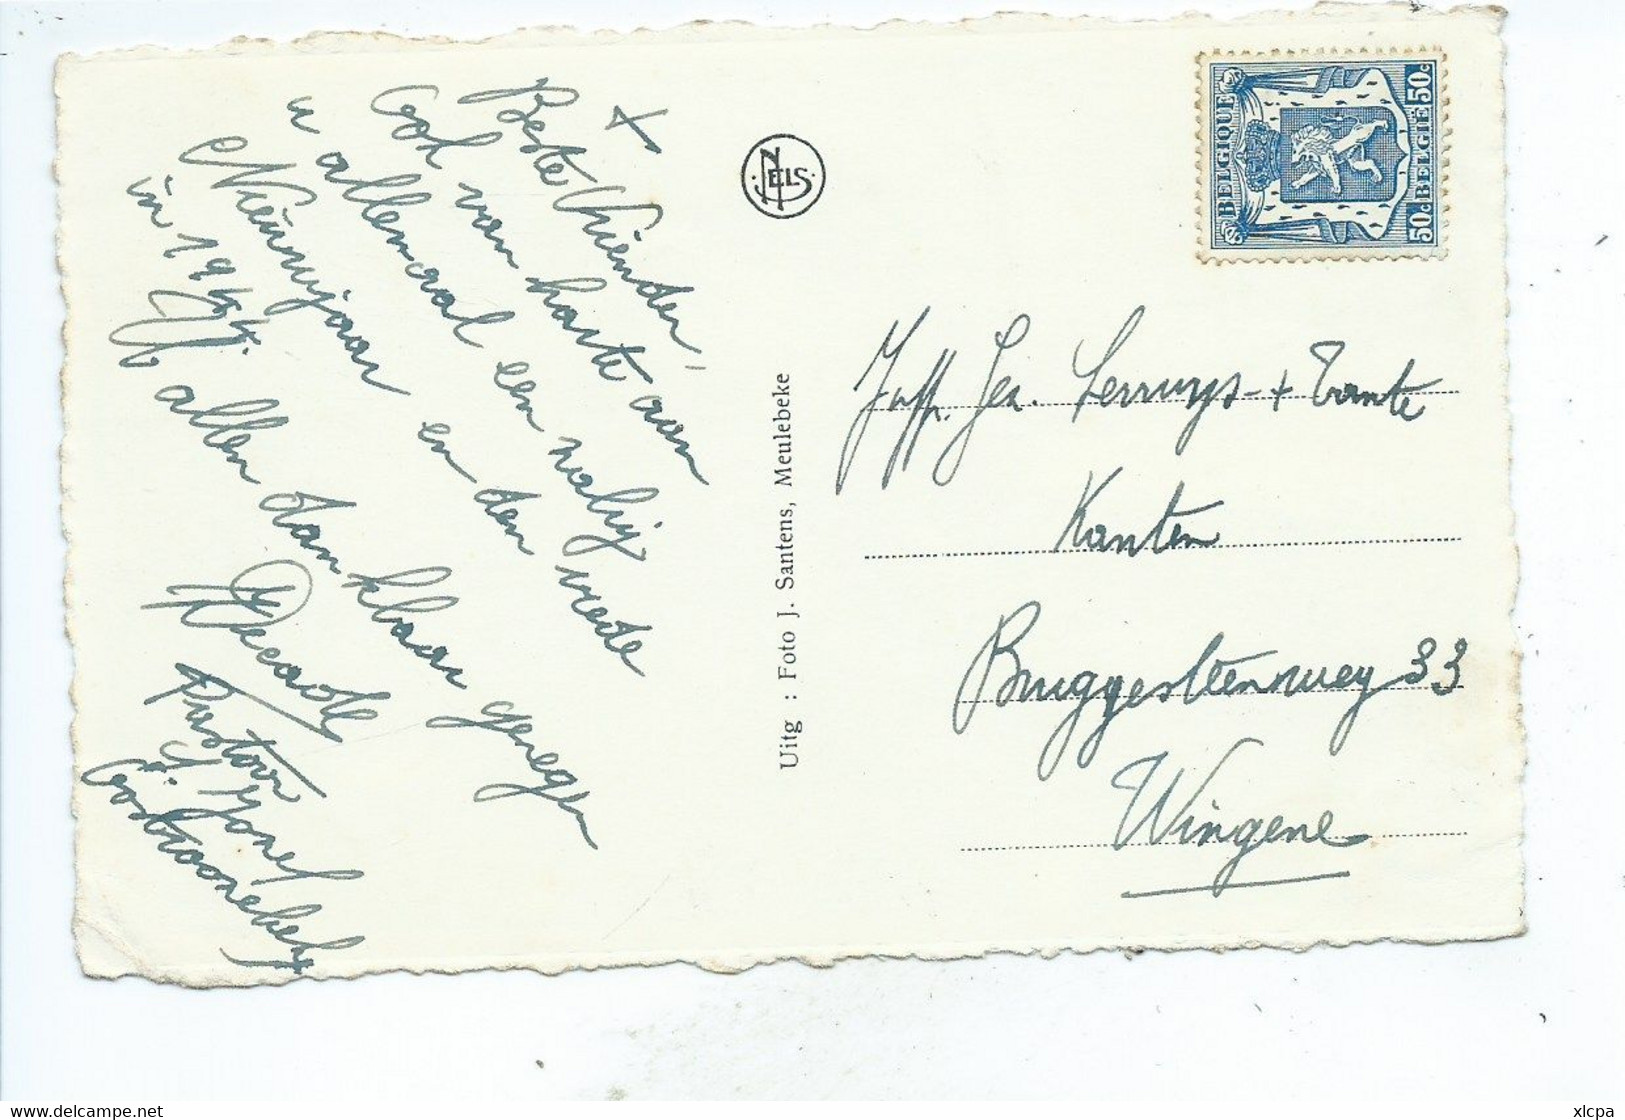 +
Beste Vrienden,
Ook van harte aan
u allemaal een zalig
Nieuwjaar en den vrede
in 1944.
U allen dankbaar genegen
Pastoor
Oostroosebeke
NELS
Uitg : Foto J. Santens, Meulebeke
BELGIQUE 50c
50c BELGIË
Juffr. + Tante
Kanten
Bruggesteenweg 33
Wingene
delcampe.net
xlcpa